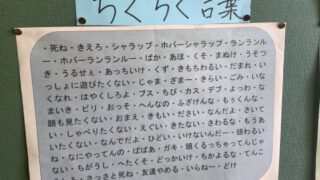 ちくちく言葉
・死ね・きえろ・シャラップ・ホバーシャラップ・ランランルー
・ホバーランランルー・ばか・あほ・くそ・まぬけ・うそつ
き・うるせぇ・あっちいけ・くず・きもちわるい・だまれ・い
っしょに遊びたくない・じゃま・ざまー・きらい・ごみ・いな
くなれ・はやくしろよ・ブス・ちび・カス・デブ・よっわ・な
まいき・ビリ・おっそ・へんなの・ふざけんな・もぅくんな・
顔も見たくない・おまえ・きもい・ださい・なんだよ・さいて
い・しゃべりたくない・えぐい・きたない・きわるな・もうあ
いたくない・なんでだよ・ひどい・いけないんだー・頭わるい
ね・なにやってんの・ばばあ・ガキ・頭くるっちゃってんじゃ
ない・ちがうし・へたくそ・どっかいけ・ちかよるな・てんこ
さっさと死ね・友達やめる・いらねー・どけ